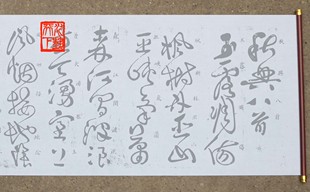 秋興八首
玉露凋傷
楓樹林巫山
巫峽氣蕭
森江間波浪
兼天湧塞上
風雲接地陰